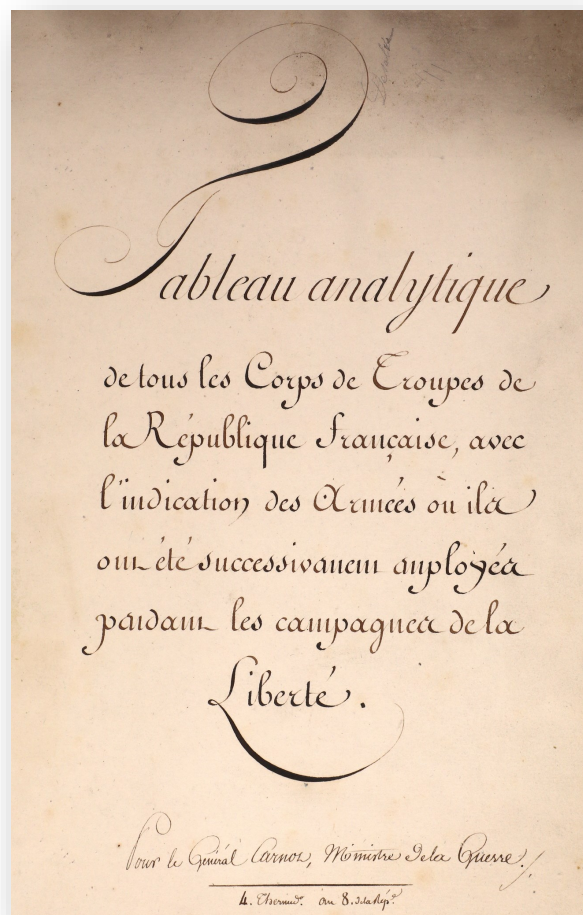 Tableau analytique
de tous les Corps de Troupes de
la République française, avec
l'indication des Armées où ils
ont été successivement employés
pendant les campagnes de la
Liberté.
Pour le Général Carnot, Ministre de la Guerre.
4. Thermid.r an 8. de la Rép.e